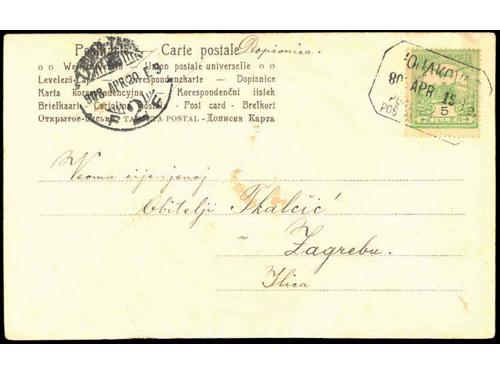 Postkarte Carte postale Dopisnica.
Weltpostverein — Union postale universelle
Levelező-Lap Correspondenzkarte — Dopisnice
Karta korespondencyjna — Korespondenční lístek
Briefkaart — Cartolina postale — Post card - Brefkort
Открытое Письмо TARJETA POSTAL - Дописна Карта
808 APR. 20
2
80 APR 19
5
FILLER
Veoma cijenjenoj
Obitelji Tkalčić
u
Zagrebu.
Ilica